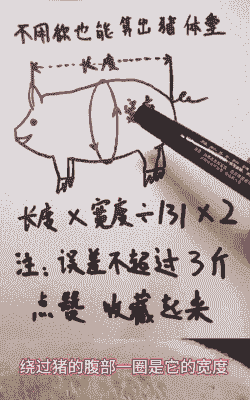 不用称也能算出猪体重
长度
宽度
长度×宽度÷131×2
注:误差不超过3斤
点赞 收藏起来
绕过猪的腹部一圈是它的宽度